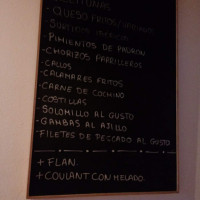 -QUESO FRITO
-SURTIDO IBERICO
-PIMIENTOS DE PADRÓN
-CHORIZOS PARRILLEROS
-CALLOS
-CALAMARES FRITOS
-CARNE DE COCHINO
-COSTILLAS
-SOLOMILLO AL GUSTO
-GAMBAS AL AJILLO
-FILETES DE PECCADO AL GUSTO
+ FLAN.
+ COULANT CON HELADO.